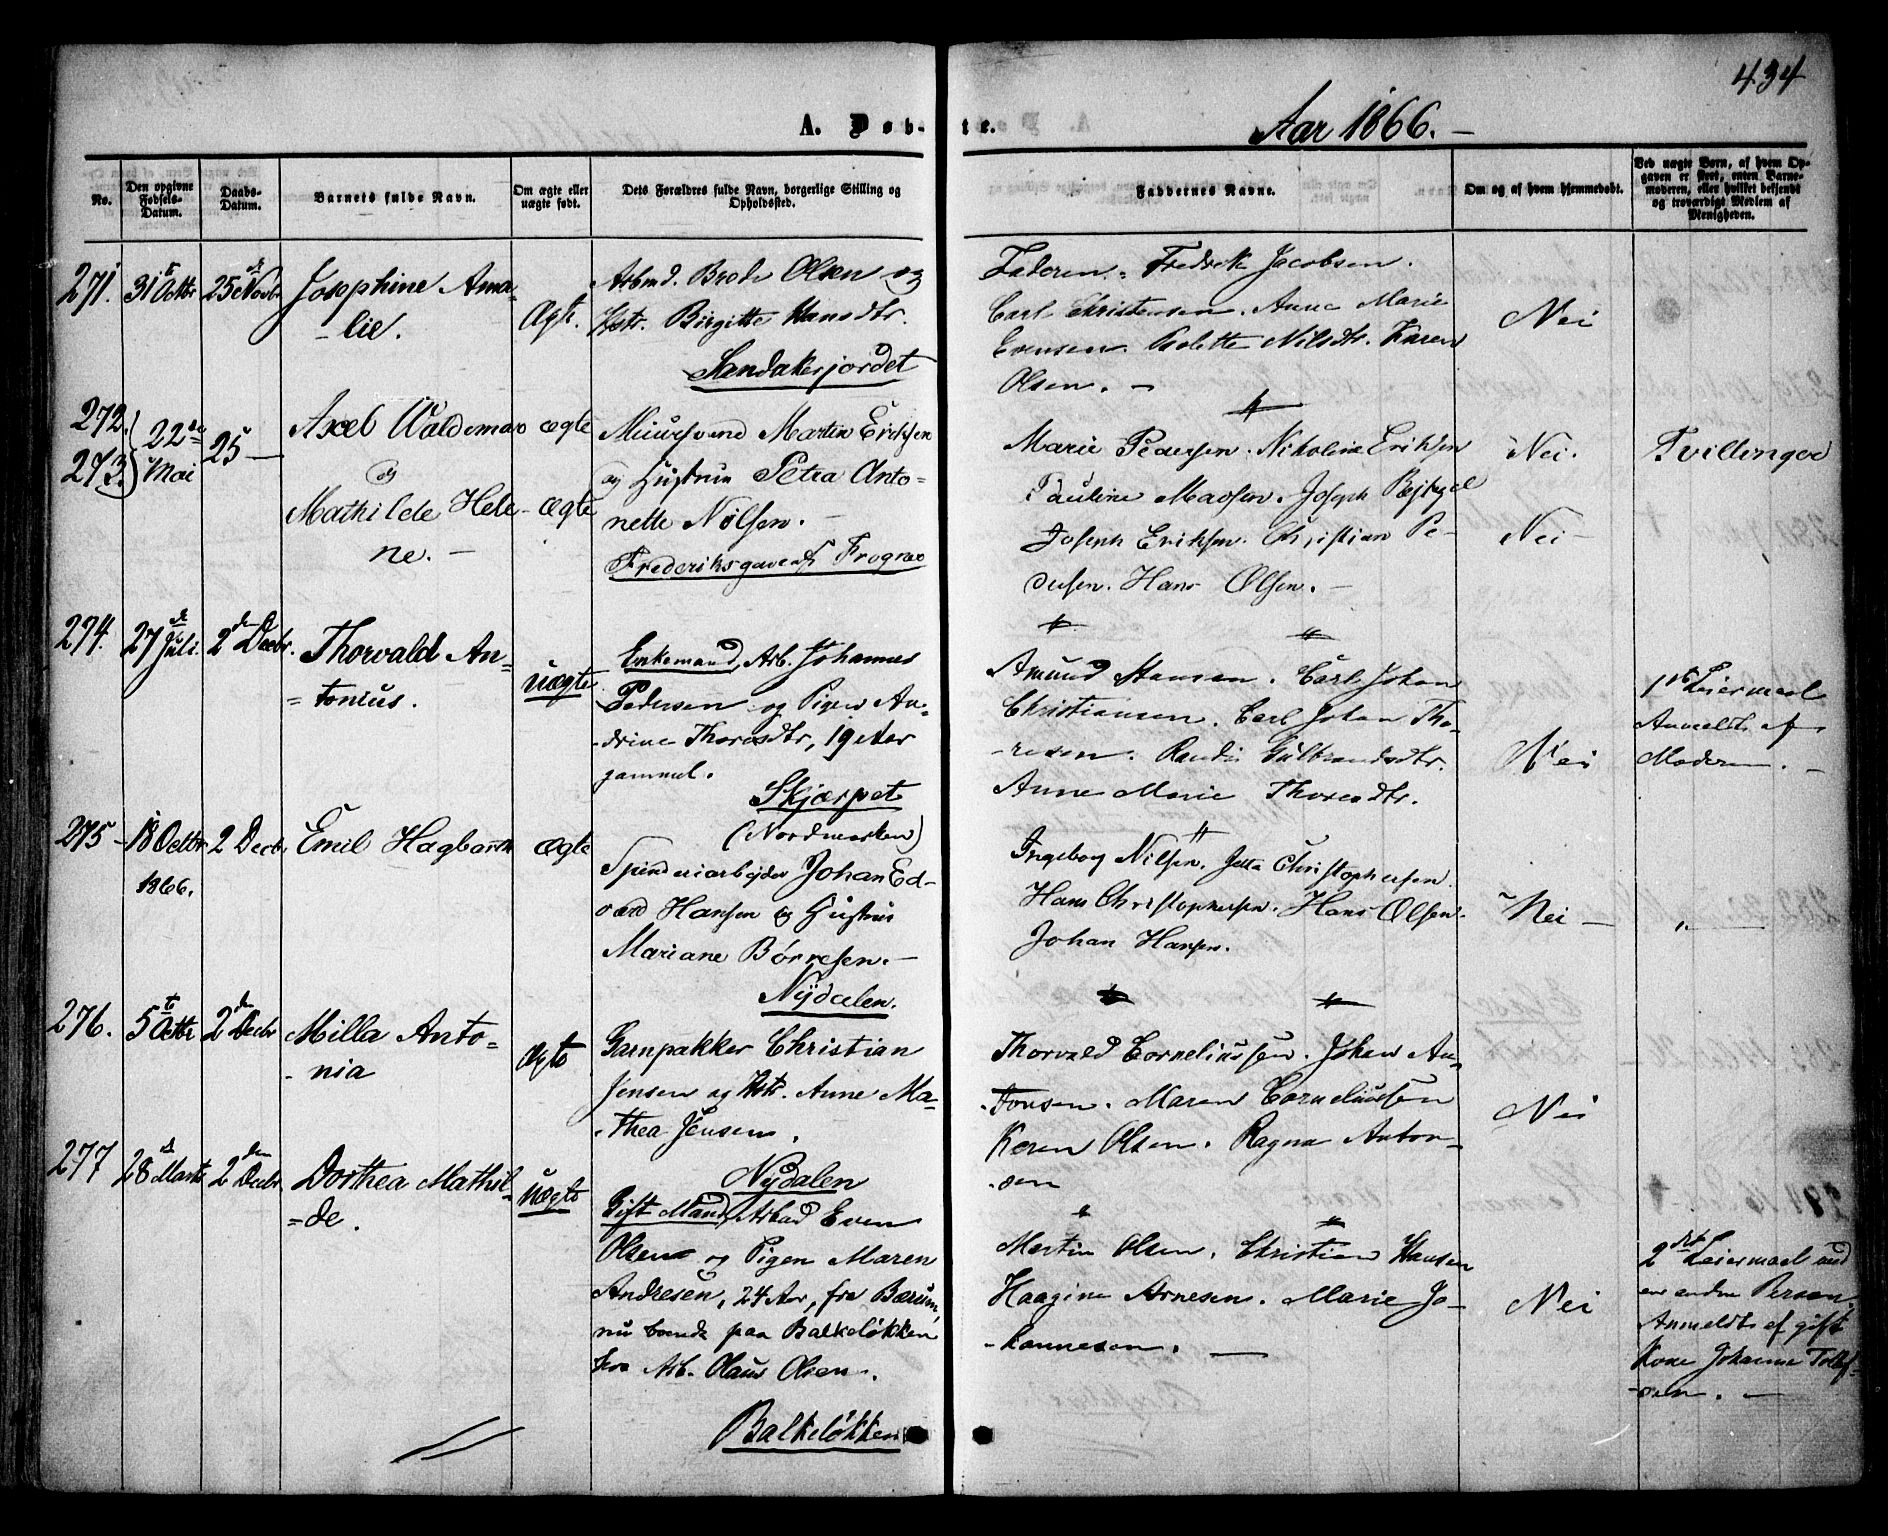 434
A. Døb-
te.
Aar 1866.
No.
Den opgivne Fødsels-Datum.
Daabs-Datum.
Barnets fulde Navn.
Om ægte eller uægte født.
Dets Forældres fulde Navn, borgerlige Stilling og Opholdssted.
Faddernes Navne.
Om og af hvem hjemmedøbt.
Ved uægte Børn, af hvem Opgaven er skeet, enten Barnemoderen, eller hvilket bekjendt og troværdigt Medlem af Menigheden.
271. 31te Octbr 25de Novbr
Josephine Ama-
lie.
Ægte.
Arbmd. Brede Olsen og
Hstr. Birgitte Hansdtr.
Sandakerjordet
Faderen. Fredrik Jacobsen.
Carl Christensen. Anne Marie
Evensen. Nilsdtr. Karen
Olsen. —
Nei
272.
273.
22de
Mai
25 —
Axel Waldemar
og
Mathilde Hele-
ne. —
ægte
ægte
Muursvend Martin Eriksen
og Hustru Petra Anto-
nette Nilsen. —
Frederiksgave af Frogner
Marie Pedersen. Nikoline Eriksen
Pauline Madsen. Joseph
Joseph Eriksen. Christian Pe-
dersen. Hans Olsen. —
Nei.
Nei —
Tvillinger
274. 27de Juli. 2den Decbr.
Thorvald An-
tonius.
uægte
Enkemand, Arb. Johannes
Pedersen og Pigen An-
drine Thoresdtr, 19 Aar
gammel.
Skjærpet
(Nordmarken)
Amund Hansen. Carl Johan
Christiansen. Carl Johan Tho-
resen. Randi Gulbrandsdtr.
Anne Marie Thoresdtr.
Nei
1ste Leiermaal
Anmeldt af
Moderen. —
275 — 18 Octbr 2 Decbr.
1866.
Emil Hagbarth
ægte
Spinderiarbejder Johan Ed-
vard Hansen og Hustru
Mariane Børresen. —
Nydalen.
Ingeborg Nilsen. Jetta Christophersen.
Hans Christophersen. Hans Olsen.
Johan Hansen.
Nei —
276. 5te Octbr 2den Decbr
Milla Anto-
nia
Ægte
Garnpakker Christian
Jensen og Hstr. Anne Ma-
thea Jensen.
Nydalen
Thorvald Corneliussen. Johan An-
tonsen. Maren Corneliussen
Karen Olsen. Ragna Anton-
sen
Nei
277 28de Marts 2den Decbr.
Dorthea Mathil-
de.
Uægte
Gift Mand, Arbmd Even
Olsen og Pigen Maren
Andresen, 24 Aar, fra Bærum,
nu boende paa Balkeløkken
hos Arb. Olaus Olsen.
Balkeløkken
Martin Olsen. Christian Hansen
Haagine Arnesen. Marie Jo-
hannesen. —
Nei
2det Leiermaal med
en anden Person.
Anmeldt af gift
Kone Johanne Tollef-
sen. —